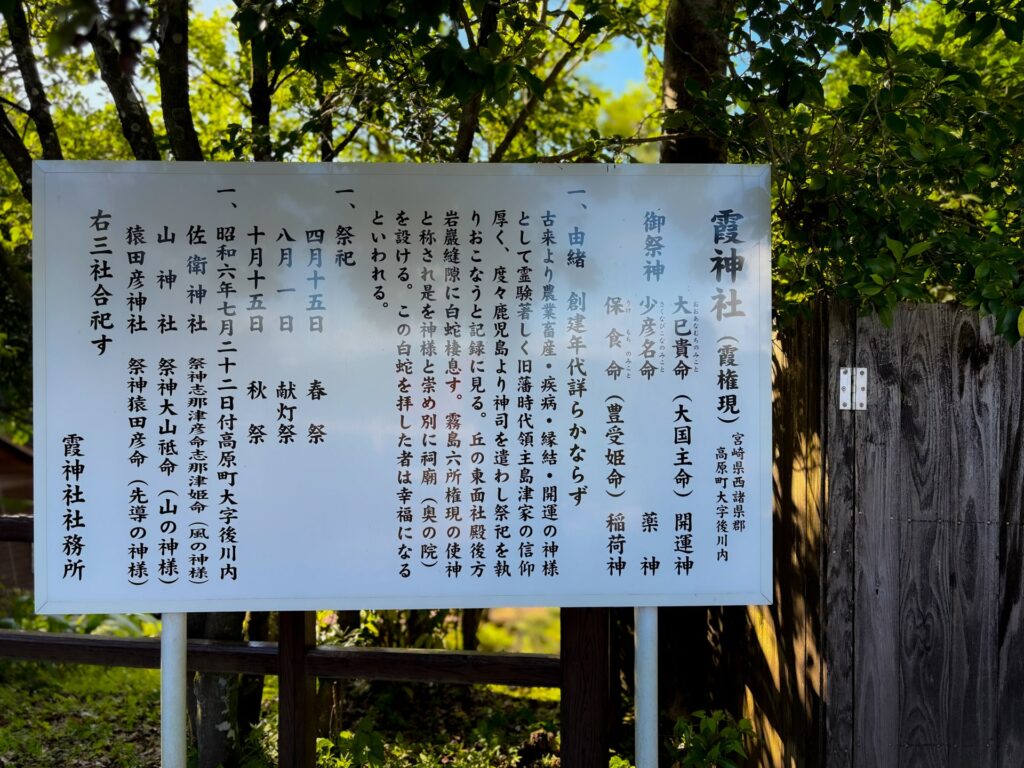 霞神社（霞権現）宮崎県西諸県郡
高原町大字後川内
御祭神 大已貴命（大国主命）開運神
おおあなむちのみこと
少彦名命 薬神
すくなびこなのみこと
保食命（豊受姫命）稲荷神
うけもちのみこと
一、由緒 創建年代詳らかならず
古来より農業畜産・疾病・縁結・開運の神様
として霊験著しく旧藩時代領主島津家の信仰
厚く、度々鹿児島より神司を遣わし祭祀を執
りおこなうと記録に見る。丘の東面社殿後方
岩巖縫隙に白蛇棲息す。霧島六所権現の使神
と称され是を神様と崇め別に祠廟（奥の院）
を設ける。この白蛇を拝した者は幸福になる
といわれる。
一、祭祀
四月十五日 春祭
八月一日 献灯祭
十月十五日 秋祭
一、昭和六年七月二十二日付高原町大字後川内
佐衛神社 祭神志那津彦命志那津姫命（風の神様）
山神社 祭神大山祗命（山の神様）
猿田彦神社 祭神猿田彦命（先導の神様）
右三社合祀す
霞神社社務所